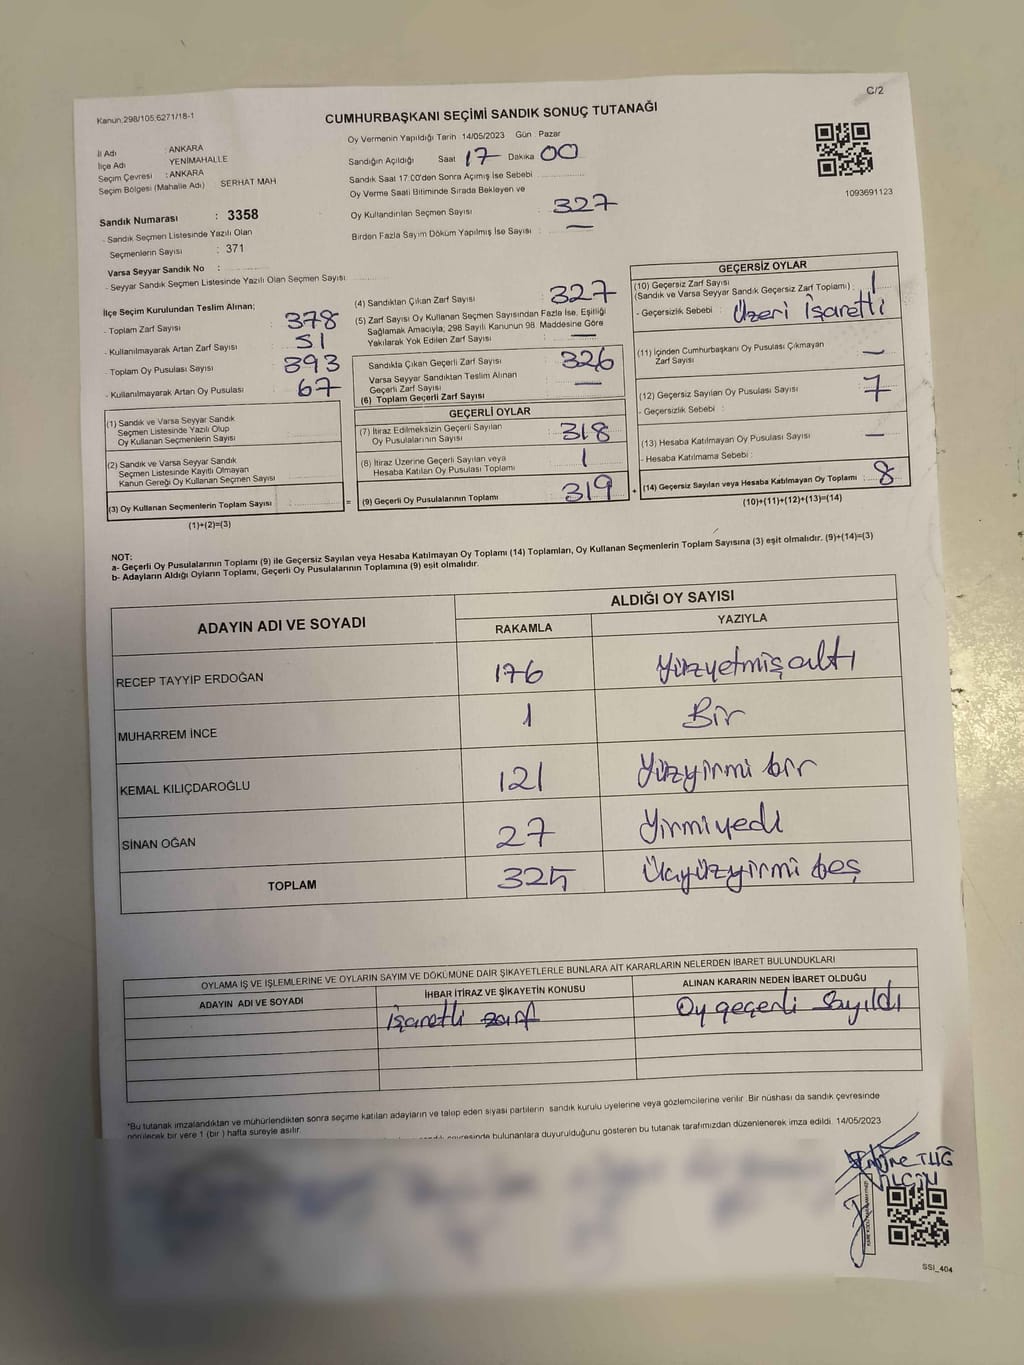 C/2
Kanun.298/105,6271/18-1
CUMHURBAŞKANI SEÇİMİ SANDIK SONUÇ TUTANAĞI
İl Adı : ANKARA
İlçe Adı YENİMAHALLE
Seçim Çevresi : ANKARA
Seçim Bölgesi (Mahalle Adı) SERHAT MAH
Sandık Numarası : 3358
- Sandık Seçmen Listesinde Yazılı Olan
Seçmenlerin Sayısı : 371
Varsa Seyyar Sandık No :
- Seyyar Sandık Seçmen Listesinde Yazılı Olan Seçmen Sayısı
Oy Vermenin Yapıldığı Tarih 14/05/2023 Gün : Pazar
Sandığın Açıldığı Saat 17 Dakika 00
Sandık Saat 17.00'den Sonra Açımış İse Sebebi
Oy Verme Saati Bitiminde Sırada Bekleyen ve
Oy Kullandırılan Seçmen Sayısı : 327
Birden Fazla Sayım Döküm Yapılmış İse Sayısı : —
1093691123
İlçe Seçim Kurulundan Teslim Alınan;
- Toplam Zarf Sayısı 378
- Kullanılmayarak Artan Zarf Sayısı 51
- Toplam Oy Pusulası Sayısı 393
- Kullanılmayarak Artan Oy Pusulası 67
(1) Sandık ve Varsa Seyyar Sandık
Seçmen Listesinde Yazılı Olup
Oy Kullanan Seçmenlerin Sayısı
(2) Sandık ve Varsa Seyyar Sandık
Seçmen Listesinde Kayıtlı Olmayan
Kanun Gereği Oy Kullanan Seçmen Sayısı
(3) Oy Kullanan Seçmenlerin Toplam Sayısı : =
(1)+(2)=(3)
(4) Sandıktan Çıkan Zarf Sayısı : 327
(5) Zarf Sayısı Oy Kullanan Seçmen Sayısından Fazla İse, Eşitliği
Sağlamak Amacıyla; 298 Sayılı Kanunun 98. Maddesine Göre
Yakılarak Yok Edilen Zarf Sayısı : —
Sandıkta Çıkan Geçerli Zarf Sayısı 326
Varsa Seyyar Sandıktan Teslim Alınan
Geçerli Zarf Sayısı —
(6) Toplam Geçerli Zarf Sayısı
GEÇERLİ OYLAR
(7) İtiraz Edilmeksizin Geçerli Sayılan
Oy Pusulalarının Sayısı : 318
(8) İtiraz Üzerine Geçerli Sayılan veya
Hesaba Katılan Oy Pusulası Toplamı : 1
(9) Geçerli Oy Pusulalarının Toplamı 319 +
GEÇERSİZ OYLAR
(10) Geçersiz Zarf Sayısı :
(Sandık ve Varsa Seyyar Sandık Geçersiz Zarf Toplamı) : 1
- Geçersizlik Sebebi : Üzeri İşaretli
(11) İçinden Cumhurbaşkanı Oy Pusulası Çıkmayan
Zarf Sayısı —
(12) Geçersiz Sayılan Oy Pusulası Sayısı 7
- Geçersizlik Sebebi :
(13) Hesaba Katılmayan Oy Pusulası Sayısı —
- Hesaba Katılmama Sebebi :
(14) Geçersiz Sayılan veya Hesaba Katılmayan Oy Toplamı : 8
(10)+(11)+(12)+(13)=(14)
NOT:
a- Geçerli Oy Pusulalarının Toplamı (9) ile Geçersiz Sayılan veya Hesaba Katılmayan Oy Toplamı (14) Toplamları, Oy Kullanan Seçmenlerin Toplam Sayısına (3) eşit olmalıdır. (9)+(14)=(3)
b- Adayların Aldığı Oyların Toplamı, Geçerli Oy Pusulalarının Toplamına (9) eşit olmalıdır.
ADAYIN ADI VE SOYADI
ALDIĞI OY SAYISI
RAKAMLA YAZIYLA
RECEP TAYYİP ERDOĞAN 176 Yüzyetmiş altı
MUHARREM İNCE 1 Bir
KEMAL KILIÇDAROĞLU 121 Yüzyirmi bir
SİNAN OĞAN 27 Yirmiyedi
TOPLAM 325 Üçyüzyirmi beş
OYLAMA İŞ VE İŞLEMLERİNE VE OYLARIN SAYIM VE DÖKÜMÜNE DAİR ŞİKAYETLERLE BUNLARA AİT KARARLARIN NELERDEN İBARET BULUNDUKLARI
ADAYIN ADI VE SOYADI İHBAR İTİRAZ VE ŞİKAYETİN KONUSU ALINAN KARARIN NEDEN İBARET OLDUĞU
İşaretli zarf Oy geçerli Sayıldı
*Bu tutanak imzalandıktan ve mühürlendikten sonra seçime katılan adayların ve talep eden siyasi partilerin sandık kurulu üyelerine veya gözlemcilerine verilir. Bir nüshası da sandık çevresinde
görülecek bir yere 1 (bir) hafta süreyle asılır.
bulunanlara duyurulduğunu gösteren bu tutanak tarafımızdan düzenlenerek imza edildi. 14/05/2023
SSI_404